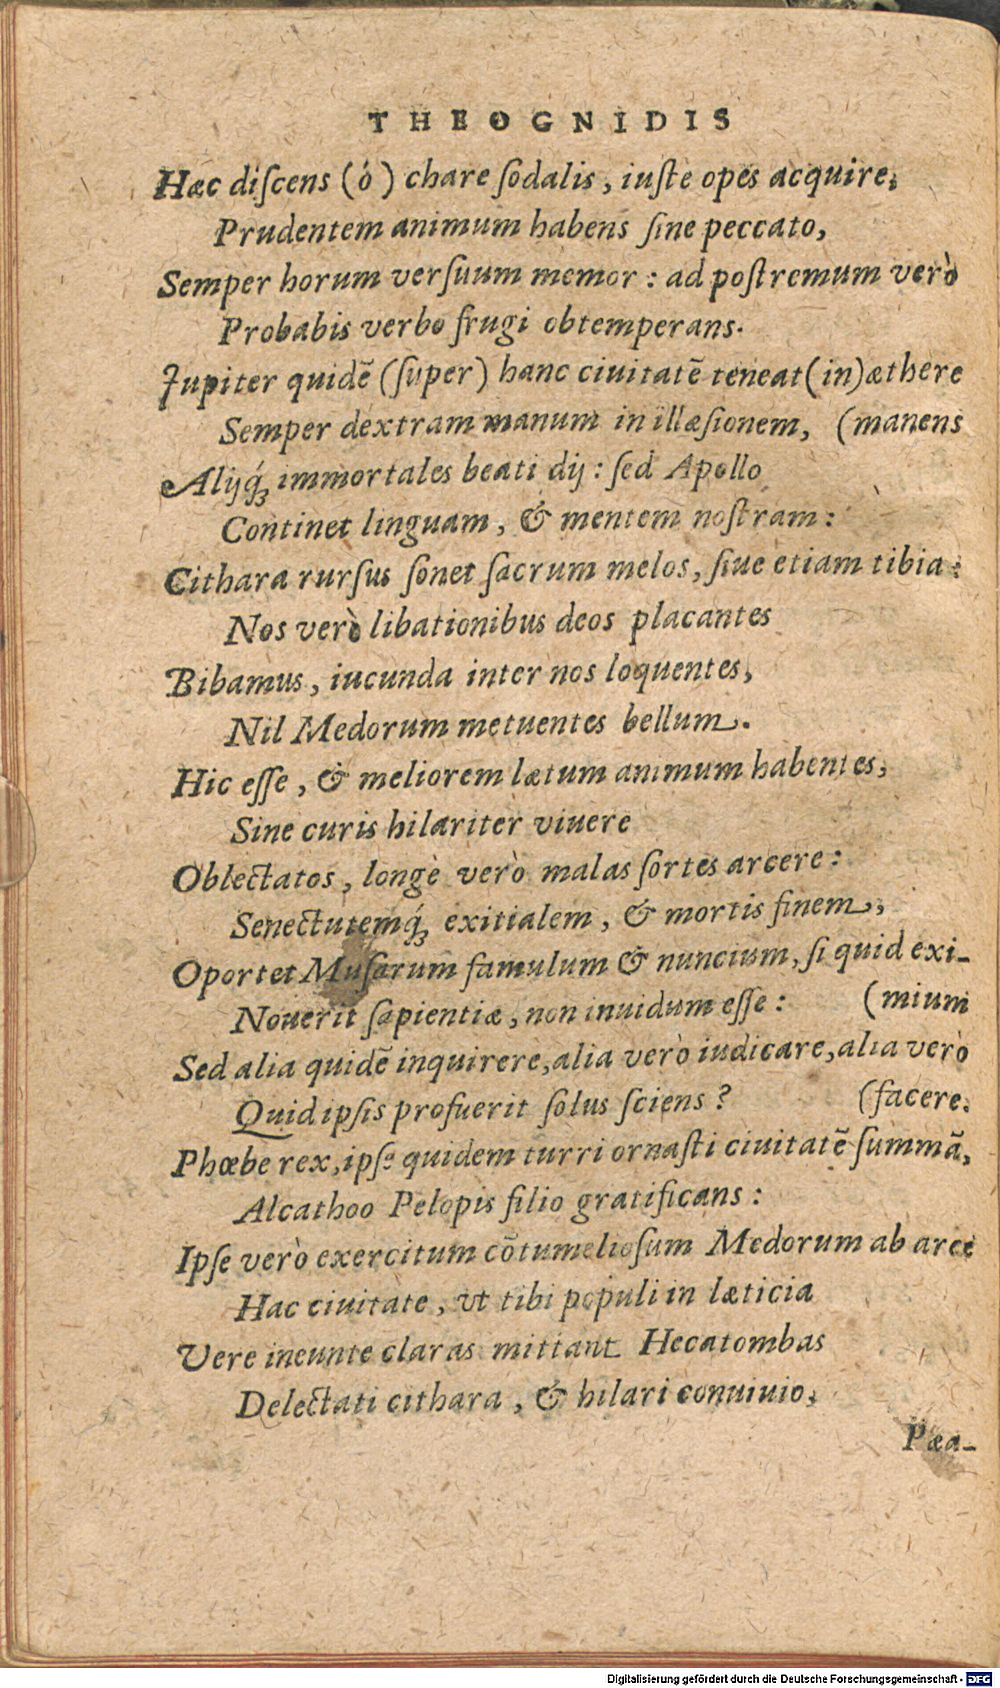 THEOGNIDIS
Hæc diſcens (ó) chare ſodalis, iuſte opes acquire,
Prudentem animum habens ſine peccato,
Semper horum verſuum memor: ad poſtremum verò
Probabis verbo frugi obtemperans.
Jupiter quidē (ſuper) hanc ciuitatē teneat (in) æthere
Semper dextram manum in illæſionem, (manens
Alijq́; immortales beati dij: ſed Apollo
Continet linguam, & mentem noſtram:
Cithara rurſus ſonet ſacrum melos, ſiue etiam tibia:
Nos verò libationibus deos placantes
Bibamus, iucunda inter nos loquentes,
Nil Medorum metuentes bellum.
Hic eſſe, & meliorem lætum animum habentes,
Sine curis hilariter viuere
Oblectatos, longè verò malas ſortes arcere:
Senectutemq́; exitialem, & mortis finem,
Oportet Muſarum famulum & nuncium, ſi quid exi-
Nouerit ſapientiæ, non inuidum eſſe: (mium
Sed alia quidē inquirere, alia verò iudicare, alia verò
Quid ipſis profuerit ſolus ſciens? (facere.
Phœbe rex, ipſe quidem turri ornaſti ciuitatē ſummā,
Alcathoo Pelopis filio gratificans:
Ipſe verò exercitum cōtumelioſum Medorum ab arce
Hac ciuitate, vt tibi populi in læticia
Vere ineunte claras mittant Hecatombas
Delectati cithara, & hilari conuiuio,
Pæa-
Digitalisierung gefördert durch die Deutsche Forschungsgemeinschaft - DFG